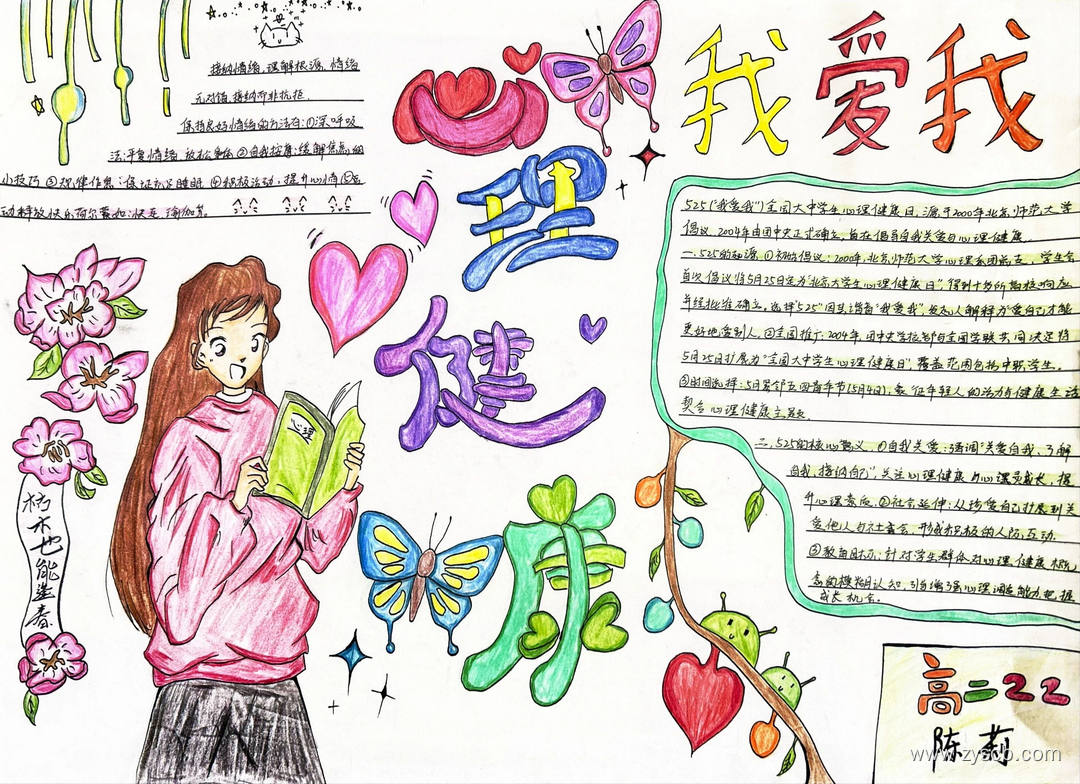 接纳情绪,理解根源,情绪
无对错,接纳而非抗拒.
保持良好情绪的方法有:①深呼吸
法:平复情绪 放松身体 ②自我按摩:缓解焦虑的
小技巧 ③规律作息:保证充足睡眠 ④积极运动,提升心情⑤
动释放快乐荷尔蒙如:快走、瑜伽等.
我爱我
心理健康
心理
朽木也能逢春
525("我爱我")全国大中学生心理健康日,源于2000年北京师范大学
倡议,2004年由团中央正式确立,旨在倡导自我关爱与心理健康.
一.525的起源 ①初始倡议:2000年,北京师范大学心理系团总支、学生会
首次倡议将5月25日定为"北京大学生心理健康日"得到十多所高校响应
并经批准确立。选择"525"因其谐音"我爱我",发起人解释为爱自己才能
更好地爱别人 ②全国推广:2004年 团中央学校部与全国学联共同决定将
5月25日扩展为"全国大中学生心理健康日",覆盖范围包括中职学生。
③时间选择:5月紧邻五四青年节(5月4日),象征年轻人的活力与健康生活
契合心理健康主题
二.525的核心意义 ①自我关爱:强调"关爱自我、了解
自我,接纳自己",关注心理健康与心理成长,提
升心理素质 ②社会延伸:从珍爱自己扩展到关
爱他人与社会,形成积极的人际互动.
③教育目标:针对学生群体对心理健康
的模糊认知,引导增强心理调适能力,把握
成长机会。
高二22
陈莉
www.zyscb.com